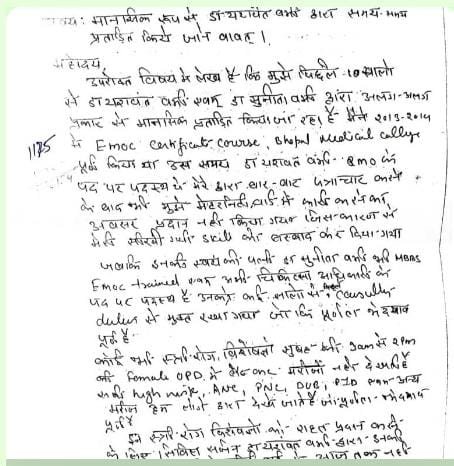 विषय: मानसिक रूप से डा यशवंत वर्मा द्वारा समय-समय
प्रताड़ित किये जाने बावत् ।
महोदय,
उपरोक्त विषय में लेख है कि मुझे पिछले 10 सालों
से डा यशवंत वर्मा एवम् डा सुनीता वर्मा द्वारा अलग-अलग
प्रकार से मानसिक प्रताड़ित किया जा रहा है मैंने 2013-2014
1185
में Emoc Certificate course, Bhopal Medical college
पूर्ण किया था उस समय डा यशवंत वर्मा BMO के
पद पर पदस्थ थे मेरे द्वारा बार-बार पत्राचार करने
के बाद भी मुझे मेटरनिटी वार्ड में कार्य करने का
अवसर प्रदान नहीं किया गया जिस कारण से
मेरी सीखी गयी skill को बरबाद कर दिया गया
जबकि इनकी स्वयं की पत्नी डा सुनीता वर्मा भी MBBS
Emoc trained एवम् चिकित्सा अधिकारी के
पद पर पदस्थ है उनको कई सालों से Causulty
duties से मुक्त रखा गया जो कि पूर्णतः भेदभाव
पूर्ण है
कोई भी स्त्री रोग विशेषज्ञ सुबह 9am से 2pm
की Female OPD में बैठकर मरीजों नहीं देखती है
सभी high risk, ANC, PNC, DUB, PID एवम् अन्य
मरीज हम लोगों द्वारा देखे जाते हैं जो पूर्णतः भेदभाव
पूर्ण है
इन स्त्री रोग विशेषज्ञों को राहत प्रदान करने
के लिए सिविल सर्जन डा यशवंत वर्मा द्वारा इनकी
आज तक नहीं